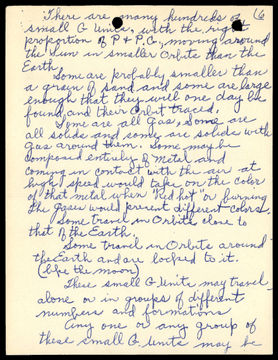 There are many hundreds of 16
small G Units, with the right
proportion of P + P.C., moving around
the Sun in smaller Orbits than the
Earth.
Some are probably smaller than
a grain of sand and some are large
enough that they will one day be
found, and their Orbit traced.
Some are all Gas, Some are
all solids and some are solids with
gas around them. Some may be
composed entirely of metal and
coming in contact with the air at
high speed would take on the color
of that metal when "Red hot" or burning
the gases would present different colors.
Some travel in Orbits close to
that of the Earth.
Some travel in Orbits around
the Earth and are locked to it.
(like the moon)
These small G Units may travel
alone or in groups of different
numbers and formations
Any one or any group of
these small G Units may be